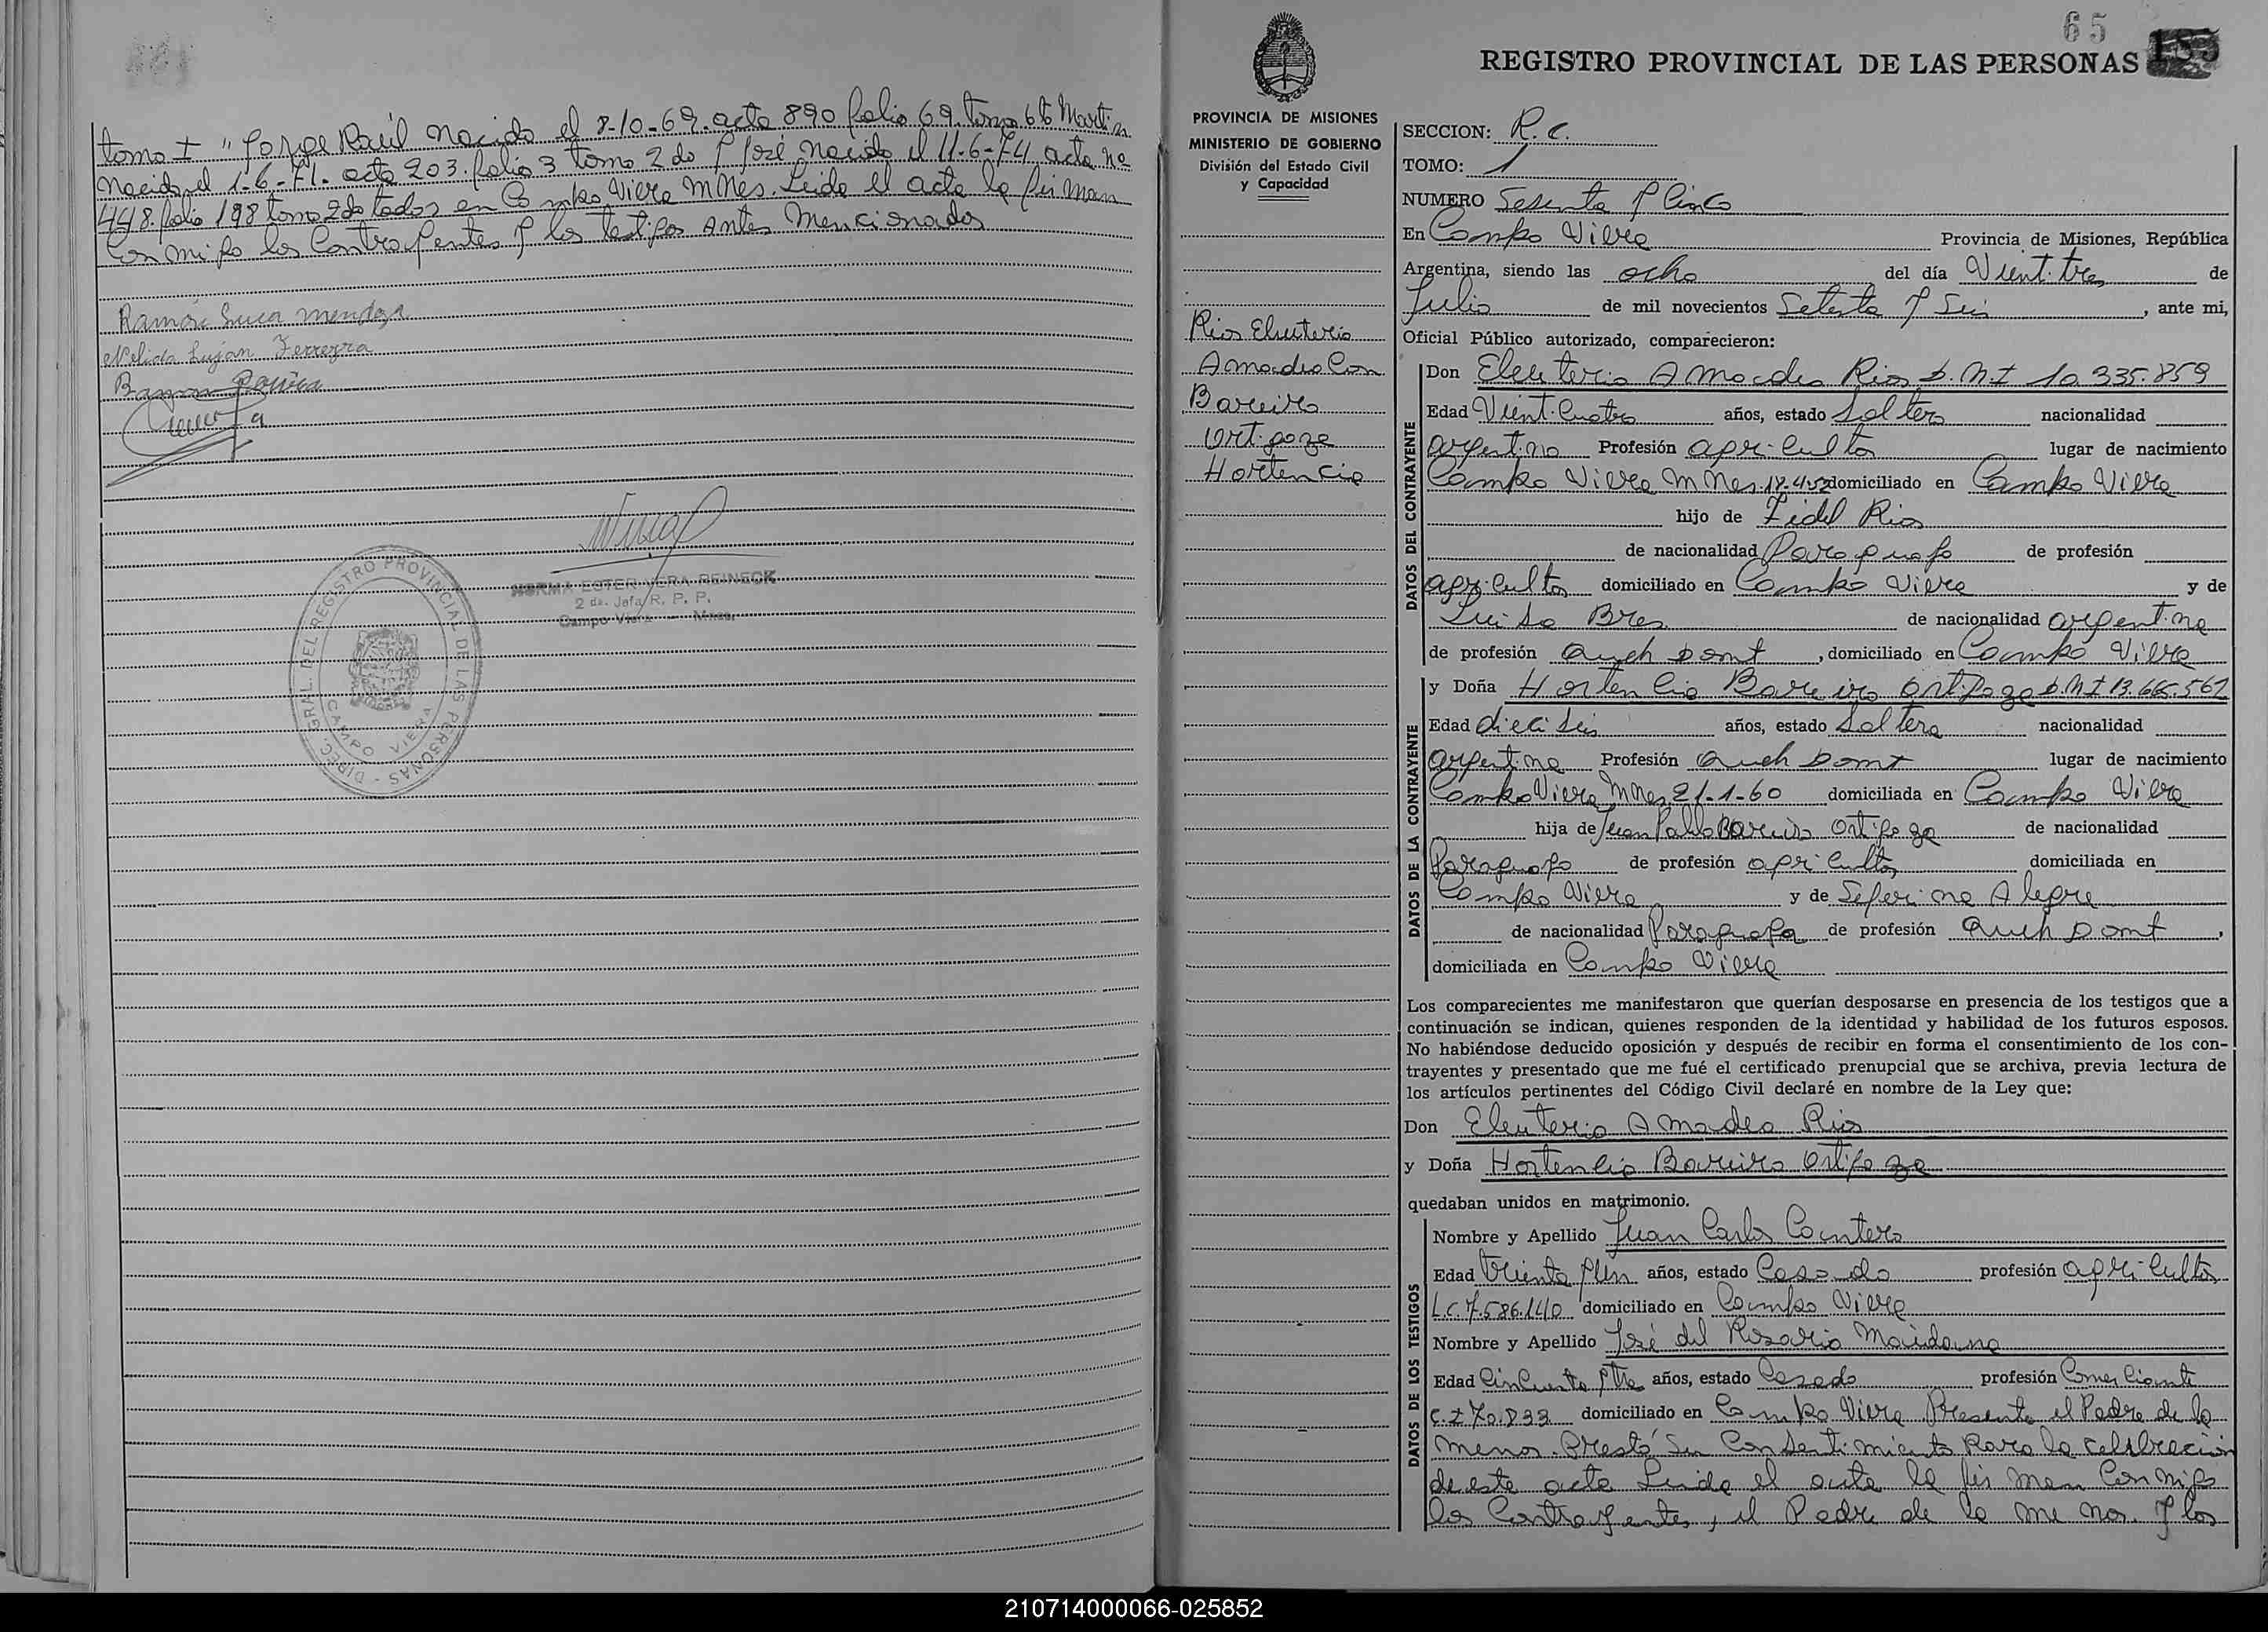 tomo I " Jorge Raúl nacido el 8-10-69. acta 890 folio 69. tomo 6t Martin
nacido el 1-6-71. acta 203. folio 3 tomo 2do y José nacido el 11-6-74 acta nº
448. folio 198 tomo 2do todos en Campo Viera Mnes. Leida el acta la firman
Con migo los Contrayentes y los testigos Antes Mencionados
Ramón Mendoza
Nelida Luján Ferreyra
NORMA ESTER VERA REINECK
2 da. Jefa R. P. P.
Campo Viera — Mnes.
DIREC. GRAL. DEL REGISTRO PROVINCIAL DE LAS PERSONAS -
CAMPO VIERA
65
REGISTRO PROVINCIAL DE LAS PERSONAS 185
PROVINCIA DE MISIONES
MINISTERIO DE GOBIERNO
División del Estado Civil
y Capacidad
Rios Eleuterio
Amadeo Con
Bareiro
Ortigoza
Hortencia
SECCION: R.C.
TOMO: 1
NUMERO Sesenta y Cinco
En Campo Viera Provincia de Misiones, República
Argentina, siendo las ocho del día Vientitres de
Julio de mil novecientos Setenta y Seis, ante mi,
Oficial Público autorizado, comparecieron:
DATOS DEL CONTRAYENTE
Don Eleuterio Amadeo Rios D.N.I 10.335.859
Edad Vienticuatro años, estado Soltero nacionalidad
argentino Profesión agricultor lugar de nacimiento
Campo Viera Mnes. 18-4-52 domiciliado en Campo Viera
hijo de Fidel Rios
de nacionalidad Paraguayo de profesión
agricultor domiciliado en Campo Viera y de
Luisa Bres de nacionalidad argentina
de profesión Queh Domt, domiciliado en Campo Viera
DATOS DE LA CONTRAYENTE
y Doña Hortencia Bareiro Ortigoza D.N.I 13.665.562
Edad dieciseis años, estado Soltera nacionalidad
argentina Profesión Queh Domt lugar de nacimiento
Campo Viera Mnes 21-1-60 domiciliada en Campo Viera
hija de Juan Pablo Bareiro Ortigoza de nacionalidad
Paraguayo de profesión agricultor domiciliada en
Campo Viera y de Seferina Alegre
de nacionalidad Paraguaya de profesión Queh Domt,
domiciliada en Campo Viera
Los comparecientes me manifestaron que querían desposarse en presencia de los testigos que a
continuación se indican, quienes responden de la identidad y habilidad de los futuros esposos.
No habiéndose deducido oposición y después de recibir en forma el consentimiento de los con-
trayentes y presentado que me fué el certificado prenupcial que se archiva, previa lectura de
los artículos pertinentes del Código Civil declaré en nombre de la Ley que:
Don Eleuterio Amadeo Rios
y Doña Hortencia Bareiro Ortigoza
quedaban unidos en matrimonio.
DATOS DE LOS TESTIGOS
Nombre y Apellido Juan Carlos Cantero
Edad Trienta y Un años, estado Casado profesión agricultor
L.C. 7.586.140 domiciliado en Campo Viera
Nombre y Apellido José del Rosario Maidana
Edad Cincuenta y tres años, estado Casado profesión Comerciante
C.I 70.833 domiciliado en Campo Viera Presente el Padre de la
menor. Prestó Su Consentimiento Para la celebración
de este acta Leida el acta la firman Con migo
los Contrayentes, el Padre de la menor. y los
210714000066-025852